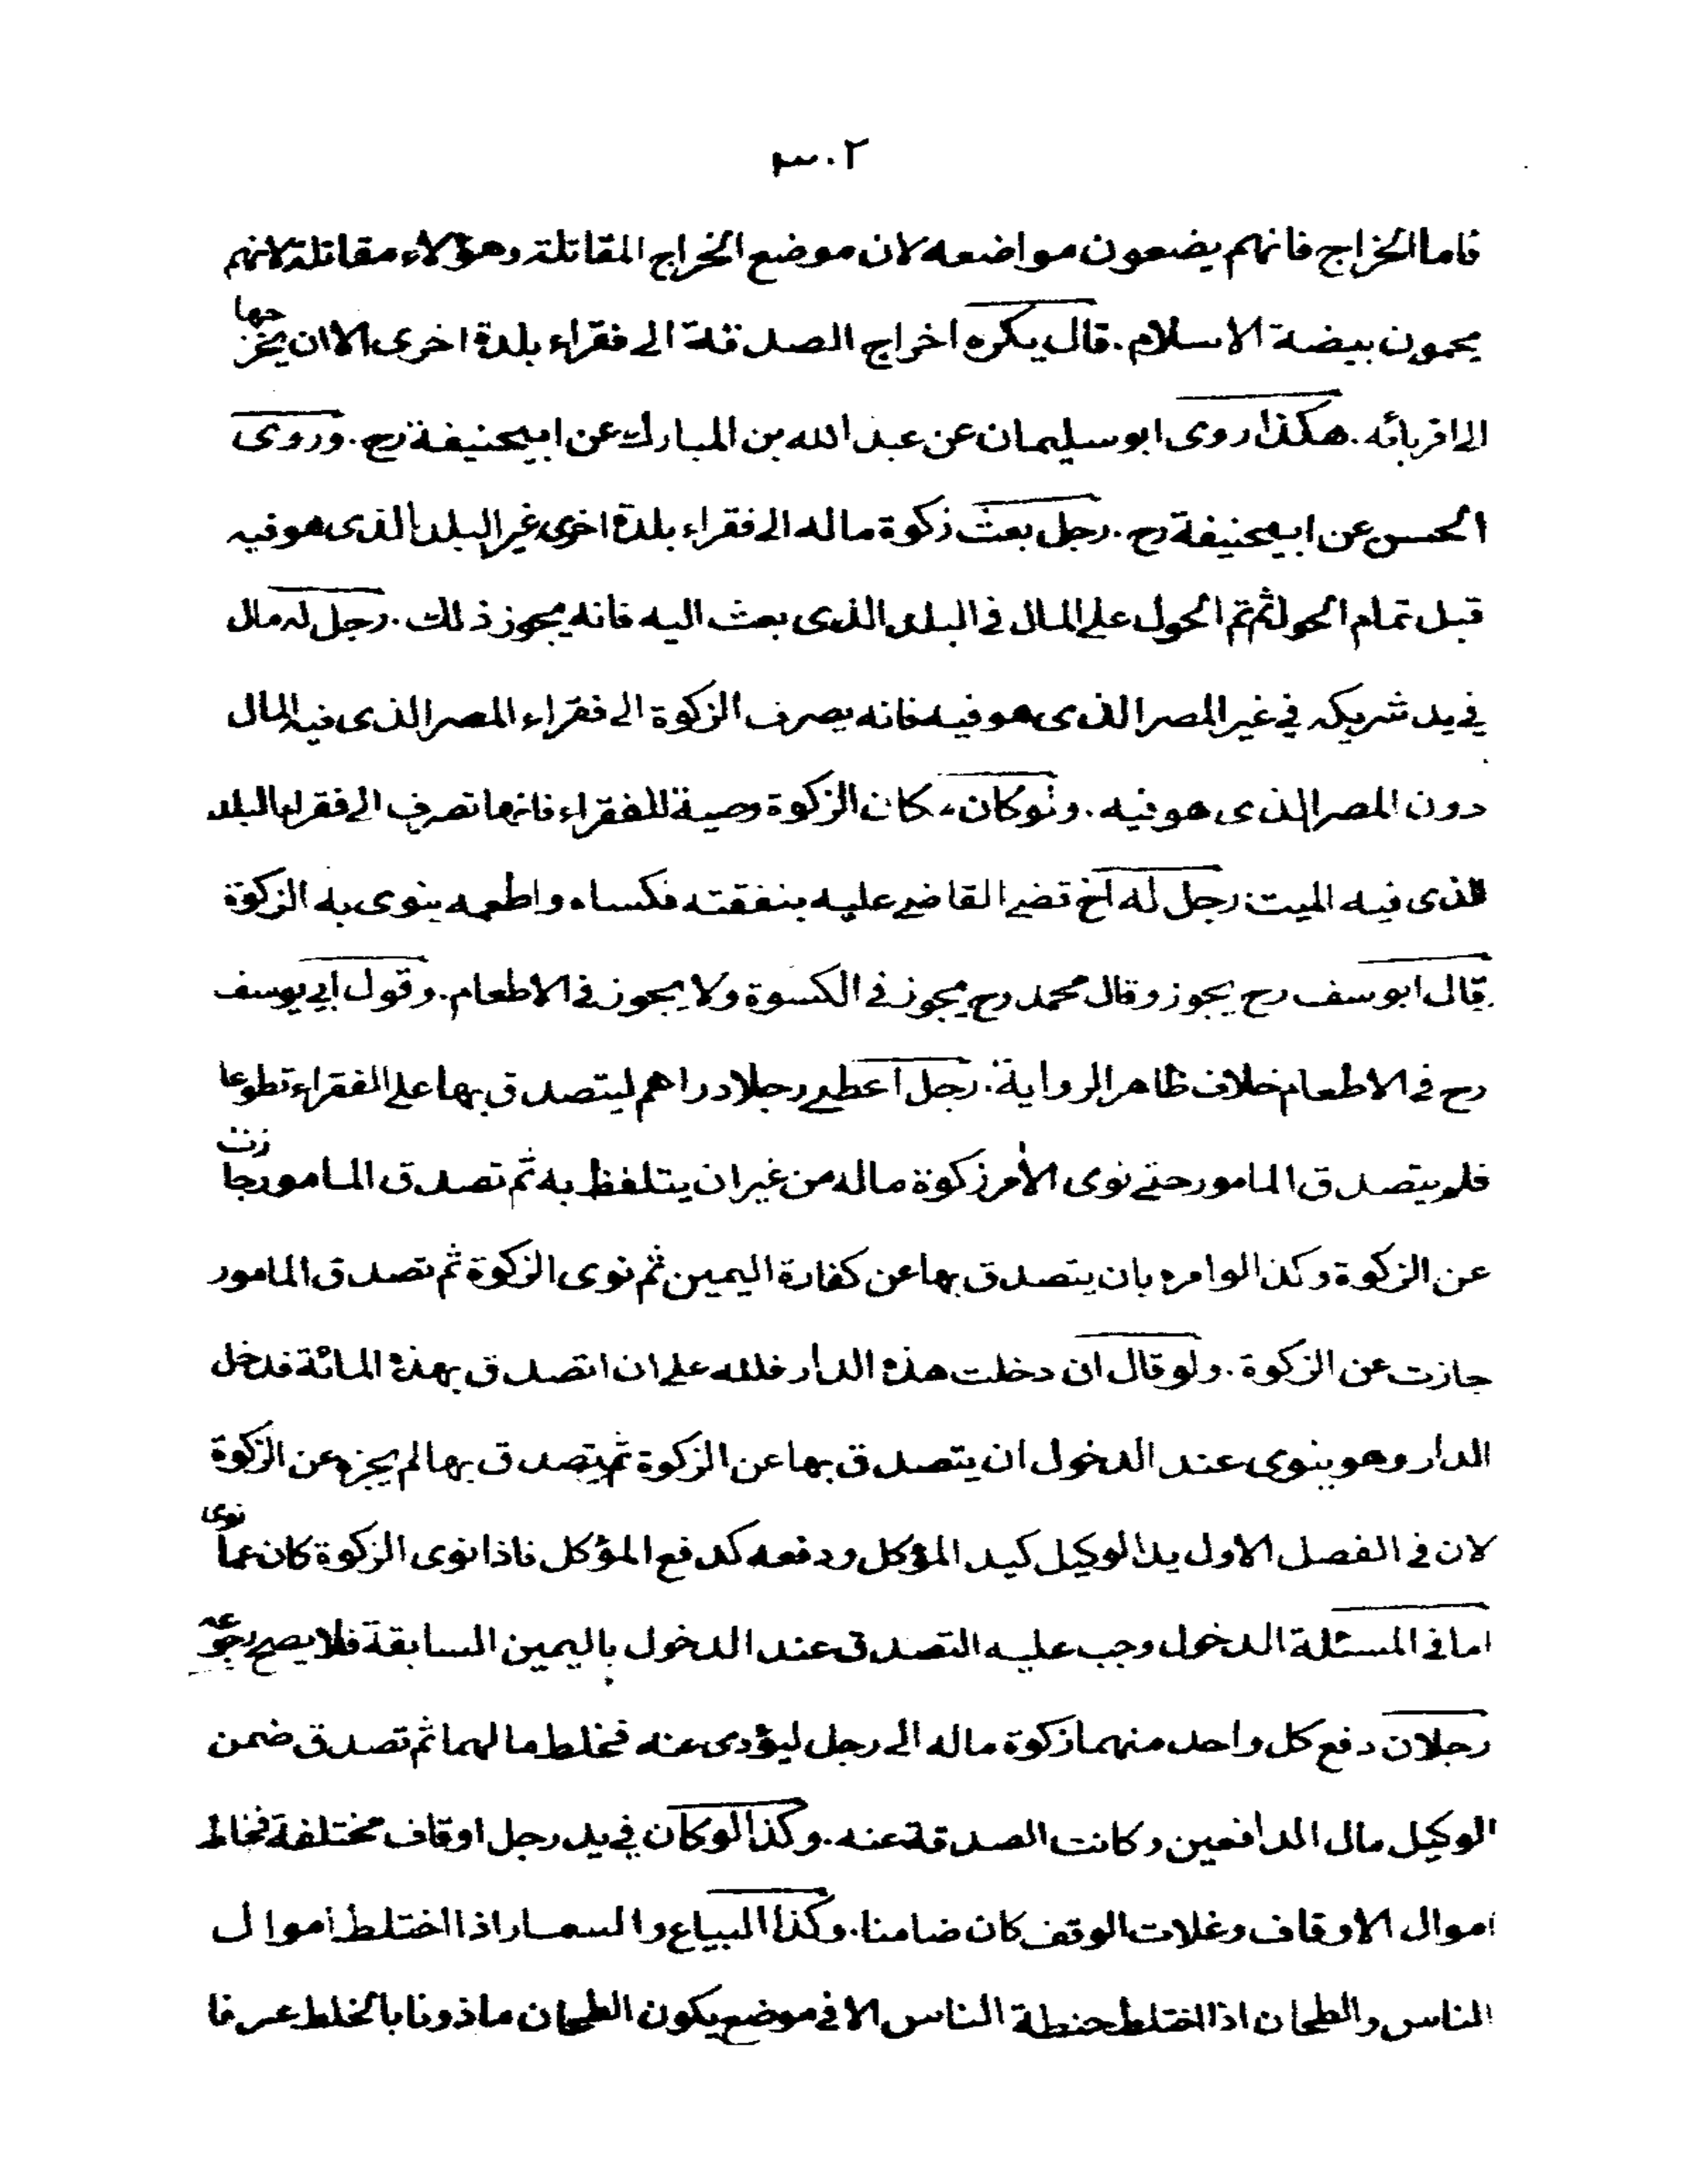 ٣٠٢
فاما الخراج فانهم يضعون مواضعه لان موضع الخراج المقاتلة وهؤلاء مقاتلة لانهم
يحمون بيضة الاسلام. قال يكره اخراج الصدقة الى فقراء بلدة اخرى الا ان يخرجها
الى اقربائه. هكذا روى ابو سليمان عن عبد الله بن المبارك عن ابيحنيفة رح. وروى
الحسن عن ابيحنيفة رح. رجل بعث زكوة ماله الى فقراء بلدة اخرى غير البلد الذى هو فيه
قبل تمام الحول ثم تم الحول على المال فى البلد الذى بعث اليه فانه يجوز ذلك. رجل له مال
فى يد شريكه فى غير المصر الذى هو فيه فانه يصرف الزكوة الى فقراء المصر الذى فيه المال
دون المصر الذى هو فيه. ولو كان مكان الزكوة وصية للفقراء فانها تصرف الى فقراء البلد
الذى فيه الميت. رجل له اخ قضى القاضى عليه بنفقته فكساه واطعمه ينوى به الزكوة
قال ابو سف رح يجوز وقال محمد رح يجوز فى الكسوة ولا يجوز فى الاطعام. وقول ابى يوسف
رح فى الاطعام خلاف ظاهر الرواية. رجل اعطى رجلا دراهم ليتصدق بها على الفقراء تطوعا
فلم يتصدق المامور حتى نوى الأمر زكوة ماله من غير ان يتلفظ به ثم تصدق المامور جازت
عن الزكوة وكذا لو امره بان يتصدق بها عن كفارة اليمين ثم نوى الزكوة ثم تصدق المامور
جازت عن الزكوة. ولو قال ان دخلت هذه الدار فلله على ان اتصدق بهذه المائة فدخل
الدار وهو ينوى عند الدخول ان يتصدق بها عن الزكوة ثم تصدق بها لم يجزه عن الزكوة
لان فى الفصل الاول يد الوكيل كيد المؤكل ودفعه كدفع المؤكل فاذا نوى الزكوة كان عما نوى
اما فى المسئلة الدخول وجب عليه التصدق عند الدخول باليمين السابقة فلا يصح رجوعه
رجلان دفع كل واحد منهما زكوة ماله الى رجل ليؤدى عنه فخلط مالهما ثم تصدق ضمن
الوكيل مال الدافعين وكانت الصدقة عنه. وكذا لو كان فى يد رجل اوقاف مختلفة فخلط
اموال الاوقاف وغلات الوقف كان ضامنا. وكذا البياع والسمسار اذا اختلط اموال
الناس والطحان اذا اختلط حنطة الناس الا فى موضع يكون الطحان ماذونا بالخلط عرفا